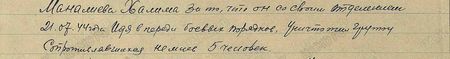 Маналиева Халима за то, что он со своим отделением
21.07.44 года Идя в переди боевых порядков, Уничтожил группу
Сопротилавшихся немцев 5 человек.